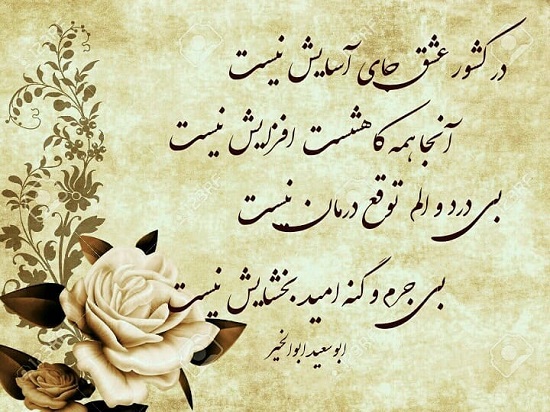 در کشور عشق جای آسایش نیست
آنجا همه کاهشست افزایش نیست
بی درد و الم توقع درمان نیست
بی جرم و گنه امید بخشایش نیست
ابوسعید ابوالخیر